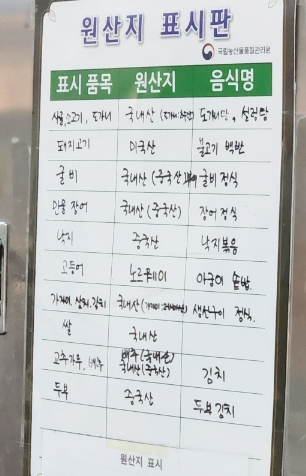 원산지 표시판
국립농산물품질관리원
표시 품목 원산지 음식명
도가니 국내산 도가니탕, 설렁탕
돼지고기 미국산 불고기 백반
굴비 국내산 (중국산) 굴비정식
민물장어 국내산 (중국산) 장어정식
낙지 중국산 낙지볶음
고등어 노르웨이
국내산 생선구이 정식.
쌀 국내산
고추가루, 배추 배추(국내산) 국내산(중국산) 김치
두부 중국산 두부김치
원산지 표시